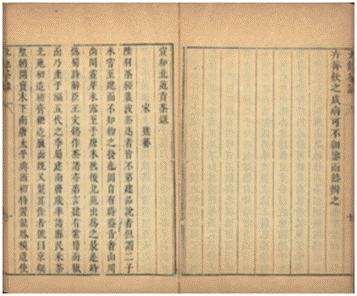 飲之成病可不細鑒而熟辨之
宣和北苑貢茶錄
宋 熊蕃
陸羽茶經裴汶茶述者皆不第建品說者但謂二子
未嘗至建而不知物之發也固自有時蓋昔者山川
尚閟靈芽未露至于唐末然後北苑出為之最是時
偽蜀時詞臣王文錫作茶譜亦第言建有紫筍而臘
面乃產于福五代之季屬建南唐歲率諸縣民采茶
北苑初造研膏繼造臘面既又製其佳者號曰京鋌
聖朝開寶末下南唐太平興國初特置龍鳳模遣使